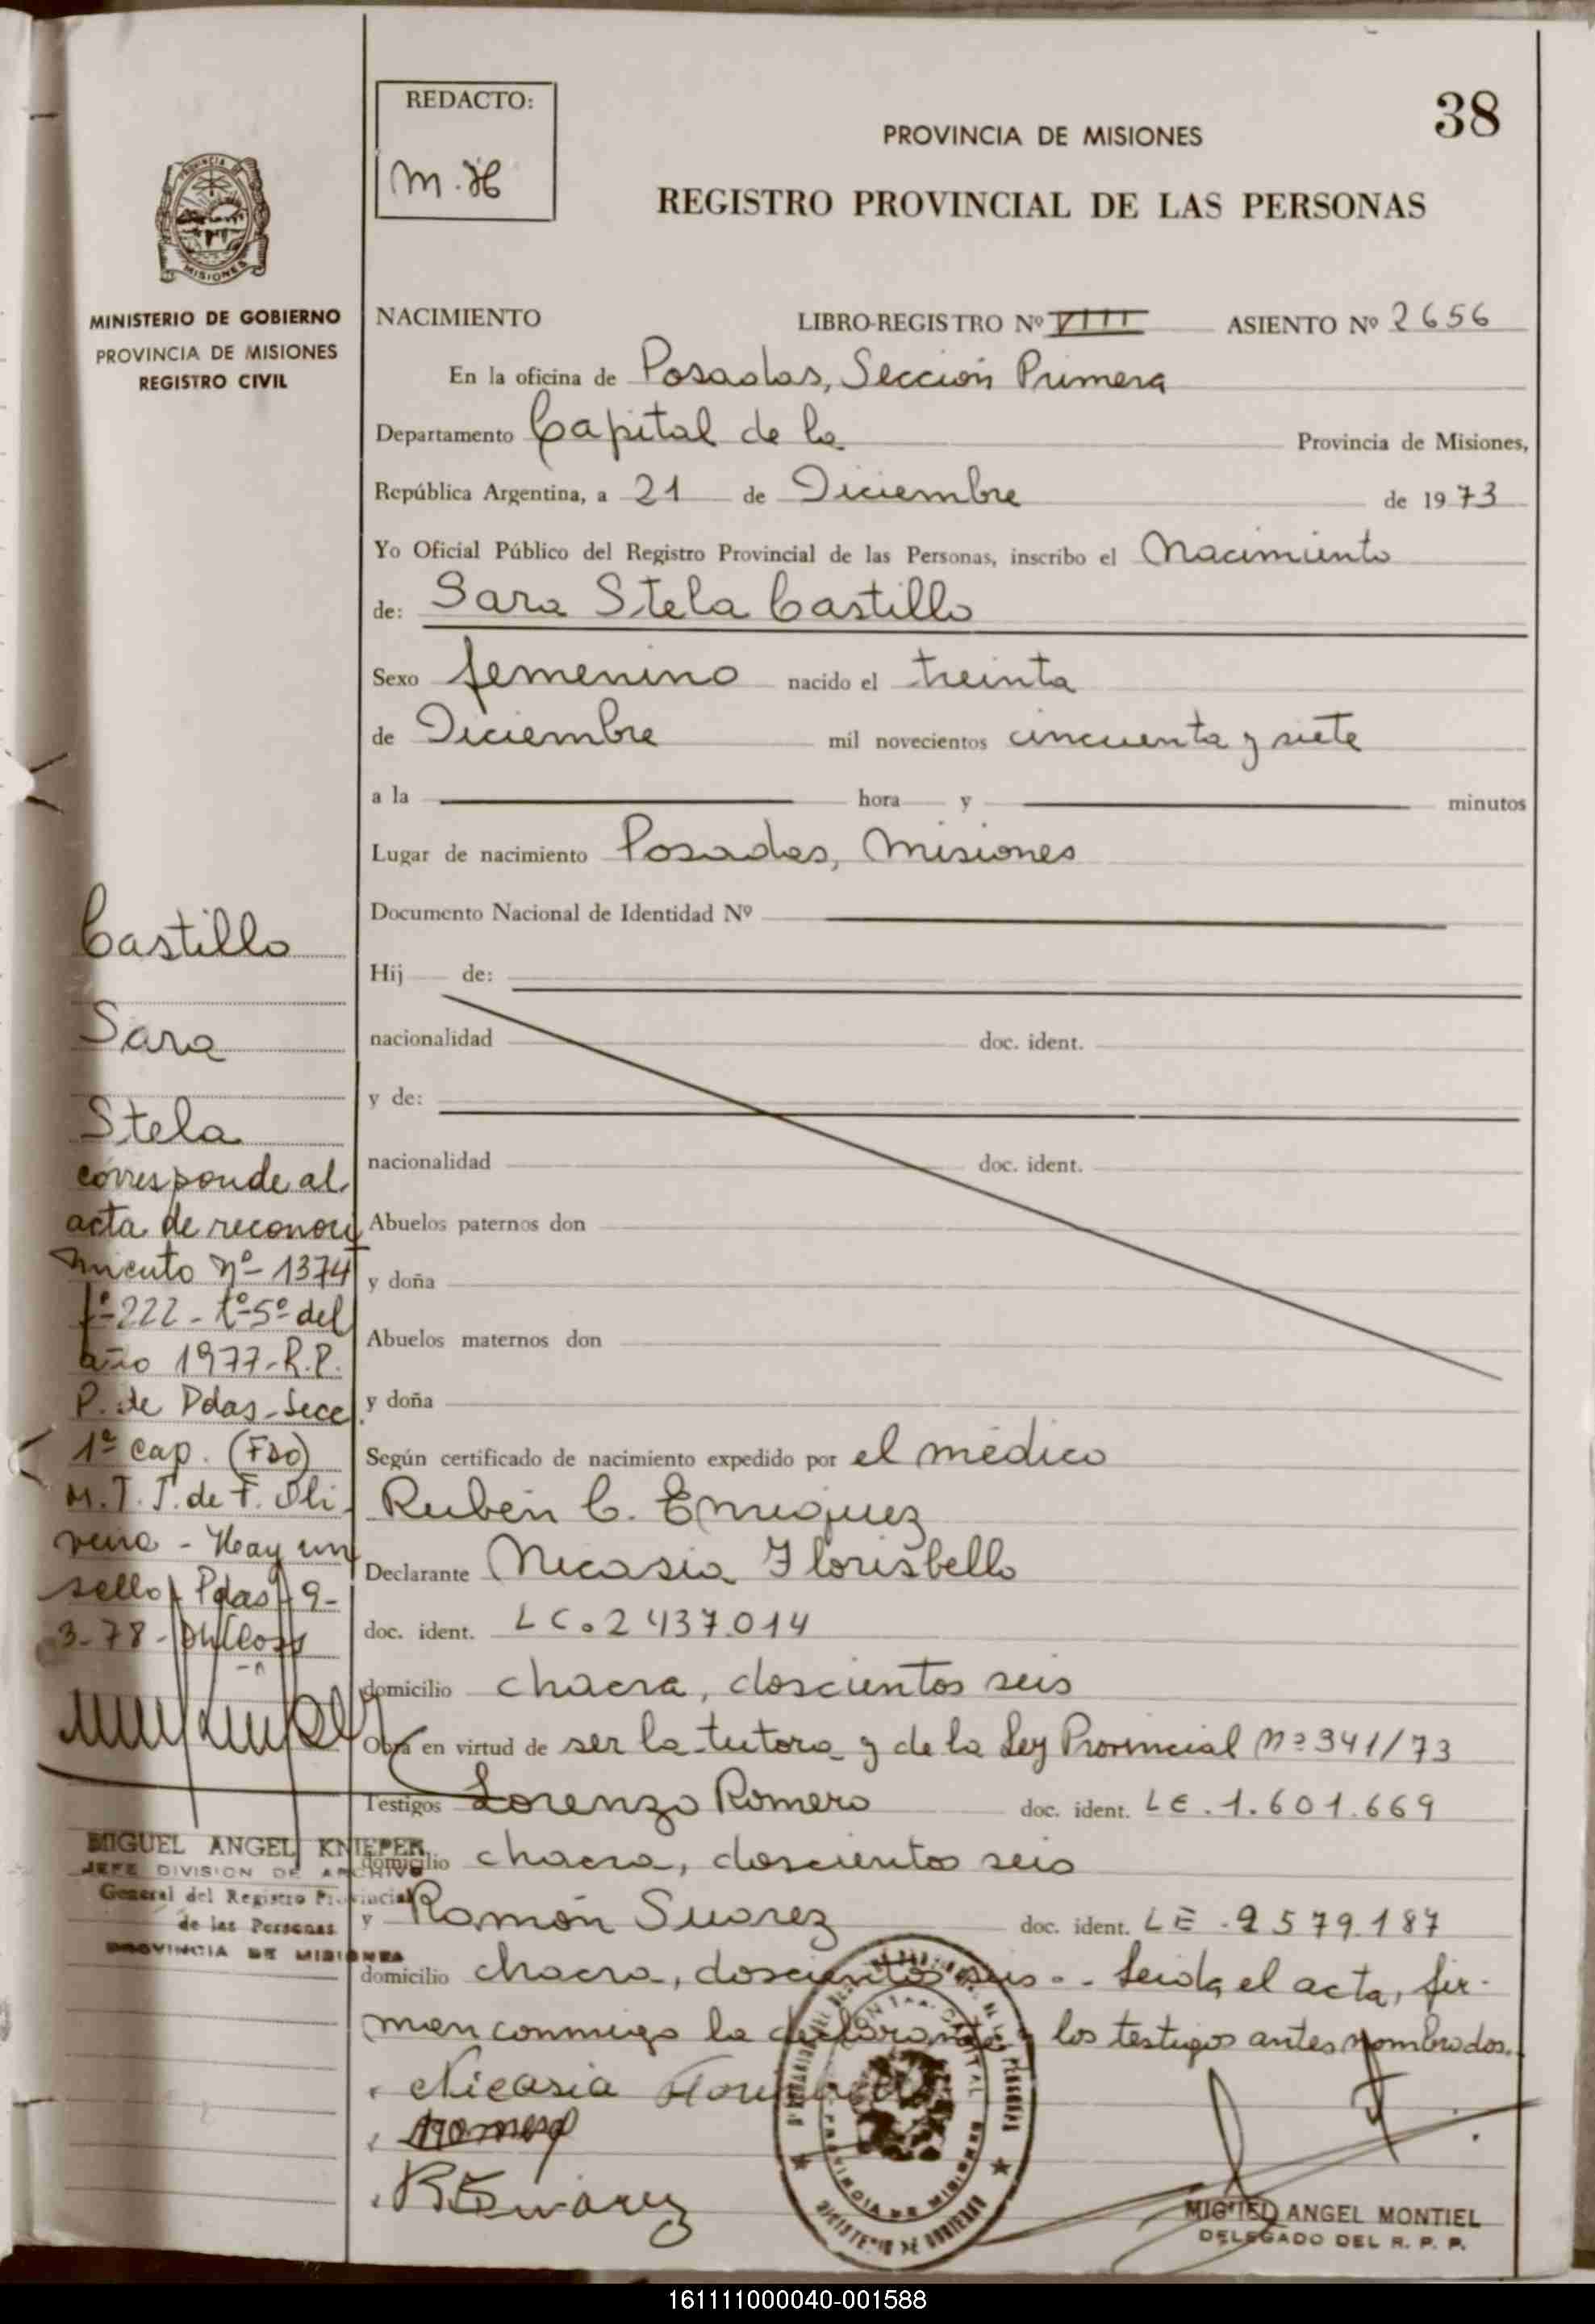 REDACTO:
M.H
38
PROVINCIA DE MISIONES
REGISTRO PROVINCIAL DE LAS PERSONAS
MISIONES
MINISTERIO DE GOBIERNO
PROVINCIA DE MISIONES
REGISTRO CIVIL
NACIMIENTO LIBRO-REGISTRO Nº VIII ASIENTO Nº 2656
En la oficina de Posadas, Sección Primera
Departamento Capital de la Provincia de Misiones,
República Argentina, a 21 de Diciembre de 1973
Yo Oficial Público del Registro Provincial de las Personas, inscribo el Nacimiento
de: Sara Stela Castillo
Sexo femenino nacido el treinta
de Diciembre mil novecientos cincuenta y siete
a la hora y minutos
Lugar de nacimiento Posadas, Misiones
Documento Nacional de Identidad Nº
Hij de:
nacionalidad doc. ident.
y de:
nacionalidad doc. ident.
Abuelos paternos don
y doña
Abuelos maternos don
y doña
Según certificado de nacimiento expedido por el médico
Rubén C. Enriquez
Declarante Nicasia Florisbello
doc. ident. LC. 2437.014
domicilio chacra, doscientos seis
Obra en virtud de ser la tutora y de la Ley Provincial Nº 341/73
Testigos Lorenzo Romero doc. ident. LE. 1.601.669
domicilio chacra, doscientos seis
y Ramón Suarez doc. ident. LE. 2579.187
domicilio chacra, doscientos seis.. Leida el acta, fir-
man conmigo la declarante y los testigos antes nombrados.
Nicasia
Romero
R Suarez
MIGUEL ANGEL MONTIEL
DELEGADO DEL R. P. P.
Castillo
Sara
Stela
corresponde al
acta de reconoci
miento Nº 1374
fº-222-tº-5º del
año 1977-R.P.
P. de Pdas-Secc.
1º cap. (Fdo)
M.T.J. de F. Oli-
veira - Hay un
sello - Pdas-9-
3-78-
MIGUEL ANGEL KNIEPER
JEFE DIVISION DE ARCHIVO
General del Registro Provincial
de las Personas
PROVINCIA DE MISIONES
161111000040-001588